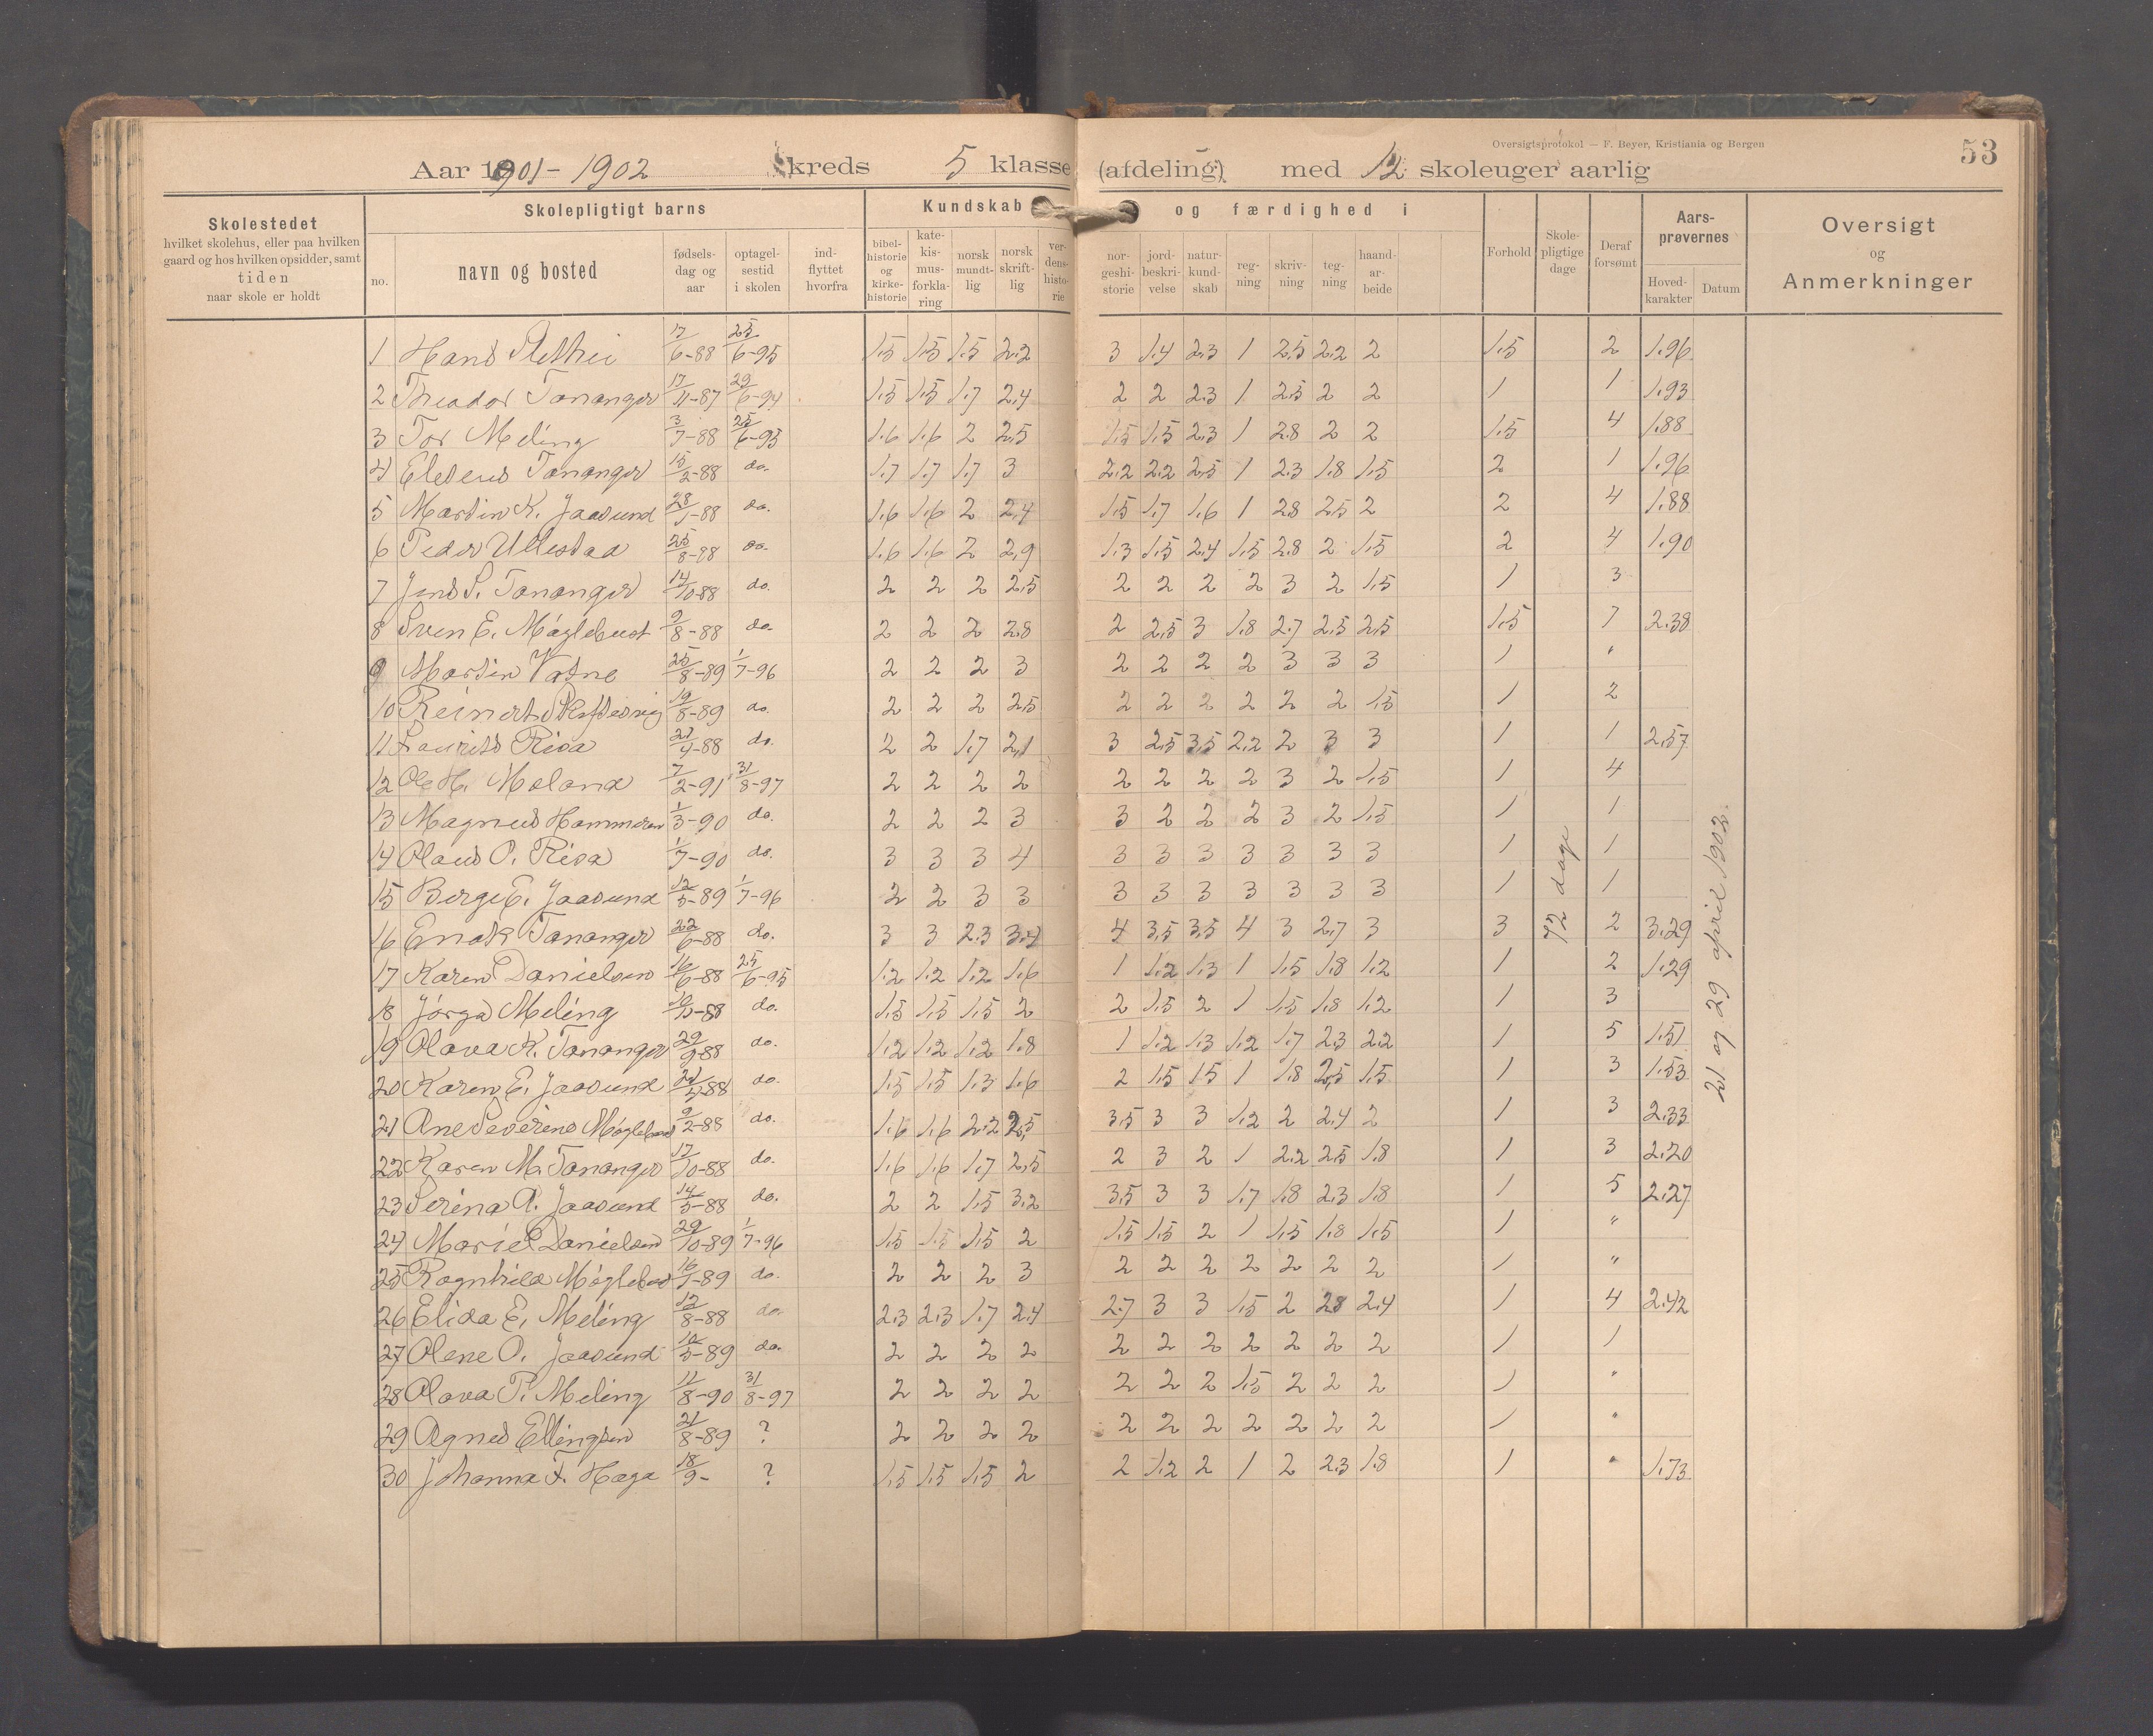 Oversigtsprotokol — F. Beyer, Kristiania og Bergen
53
Aar 1901 - 1902 kreds 5 klasse (afdeling) med 12 skoleuger aarlig
Skolestedet hvilket skolehus, eller paa hvilken gaard og hos hvilken opsidder, samt tiden naar skole er holdt
Skolepligtigt barns
no. navn og bosted fødsels-dag og aar optagel-sestid i skolen ind-flyttet hvorfra
Kundskab og færdighed i
bibel-historie og kirke-historie kate-kis-mus-forkla-ring norsk mundt-lig norsk skrift-lig ver-dens-histo-rie nor-geshi-storie jord-beskri-velse natur-kund-skab reg-ning skriv-ning teg-ning haand-ar-beide
Forhold Skole-pligtige dage Deraf forsømt Aars-prøvernes Hoved-karakter Datum
Oversigt og Anmerkninger
1 Hans 17/6-88 25/6-95 1.5 1.5 1.5 2.2 3 1.4 2.3 1 2.5 2.2 2 1.5 2 1.96
2 Theodor Tananger 17/11-87 29/6-94 1.5 1.5 1.7 2.4 2 2 2.3 1 2.5 2 2 1 1 1.93
3 Tor Meling 3/7-88 25/6-95 1.6 1.6 2 2.5 1.5 1.5 2.3 1 2.8 2 2 1.5 4 1.88
4 Eleseus Tananger 15/2-88 do. 1.7 1.7 1.7 3 2.2 2.2 2.5 1 2.3 1.8 1.5 2 1 1.96
5 Martin K. Jaasund 28/1-88 do. 1.6 1.6 2 2.4 1.5 1.7 1.6 1 2.8 2.5 2 2 4 1.88
6 Peder Ullestad 25/8-88 do. 1.6 1.6 2 2.9 1.3 1.5 2.4 1.5 2.8 2 1.5 2 4 1.90
7 Jens S. Tananger 14/10-88 do. 2 2 2 2.5 2 2 2 2 3 2 1.5 1 3
8 Sven E. Møglebust 9/8-88 do. 2 2 2 2.8 2 2.5 3 1.8 2.7 2.5 2.5 1.5 7 2.38
9 Martin Vatne 25/8-89 1/7-96 2 2 2 3 2 2 2 2 3 3 3 1 "
10 Reinert 19/8-89 do. 2 2 2 2.5 2 2 2 2 2 2 1.5 1 2
11 Laurits Risa 21/4-88 do. 2 2 1.7 2.1 3 2.5 3.5 2.2 2 3 3 1 1 2.57
12 Ole H. Meland 7/2-91 31/8-97 2 2 2 2 2 2 2 2 3 2 1.5 1 4
13 Magnus Hammeren 1/3-90 do. 2 2 2 3 3 2 2 2 3 2 1.5 1 1
14 Olaus O. Risa 1/7-90 do. 3 3 3 4 3 3 3 3 3 3 3 1 1
15 Berge E. Jaasund 12/5-89 1/7-96 2 2 3 3 3 3 3 3 3 3 3 1 1
16 Enok Tananger 22/6-88 do. 3 3 2.3 3.4 4 3.5 3.5 4 3 2.7 3 3 2 3.29
17 Karen Danielsen 16/6-88 25/6-95 1.2 1.2 1.2 1.6 1 1.2 1.3 1 1.5 1.8 1.2 1 2 1.29
18 Jørga Meling do. 1.5 1.5 1.5 2 2 1.5 2 1 1.5 1.8 1.2 1 3
19 Olava K. Tananger 29/9-88 do. 1.2 1.2 1.2 1.8 1 1.2 1.3 1.2 1.7 2.3 2.2 1 5 1.51
20 Karen E. Jaasund 21/4-88 do. 1.5 1.5 1.3 1.6 2 1.5 1.5 1 1.8 2.5 1.5 1 3 1.53
21 Ane Severine Møglebust 9/2-88 do. 1.6 1.6 2.2 2.5 3.5 3 3 1.2 2 2.4 2 1 3 2.33
22 Karen M. Tananger 17/10-88 do. 1.6 1.6 1.7 2.5 2 3 2 1 2.2 2.5 1.8 1 3 2.20
23 Serina A. Jaasund 14/5-88 do. 2 2 1.5 3.2 3.5 3 3 1.7 1.8 2.3 1.8 1 5 2.27
24 Marie Danielsen 29/10-89 1/7-96 1.5 1.5 1.5 2 1.5 1.5 2 1 1.5 1.8 1.5 1 "
25 Ragnhild Møglebust 16/1-89 do. 2 2 2 3 2 2 2 2 2 2 2 1 "
26 Elida E. Meling 12/8-88 do. 2.3 2.3 1.7 2.4 2.7 3 3 1.5 2 2.8 2.4 1 4 2.42
27 Olene O. Jaasund 10/5-89 do. 2 2 2 2 2 2 2 2 2 2 2 1 1
28 Olava P. Meling 11/8-90 31/8-97 2 2 2 2 2 2 2 1.5 2 2 2 1 "
29 Agnes Ellingsen 21/8-89 ? 2 2 2 2 2 2 2 2 2 2 2 1 "
30 Johanna F. Haga 18/9- ? 1.5 1.5 1.5 2 2 1.2 2 1 2 2.3 1.8 1 " 1.73
72 dage
21 og 29 april 1902.